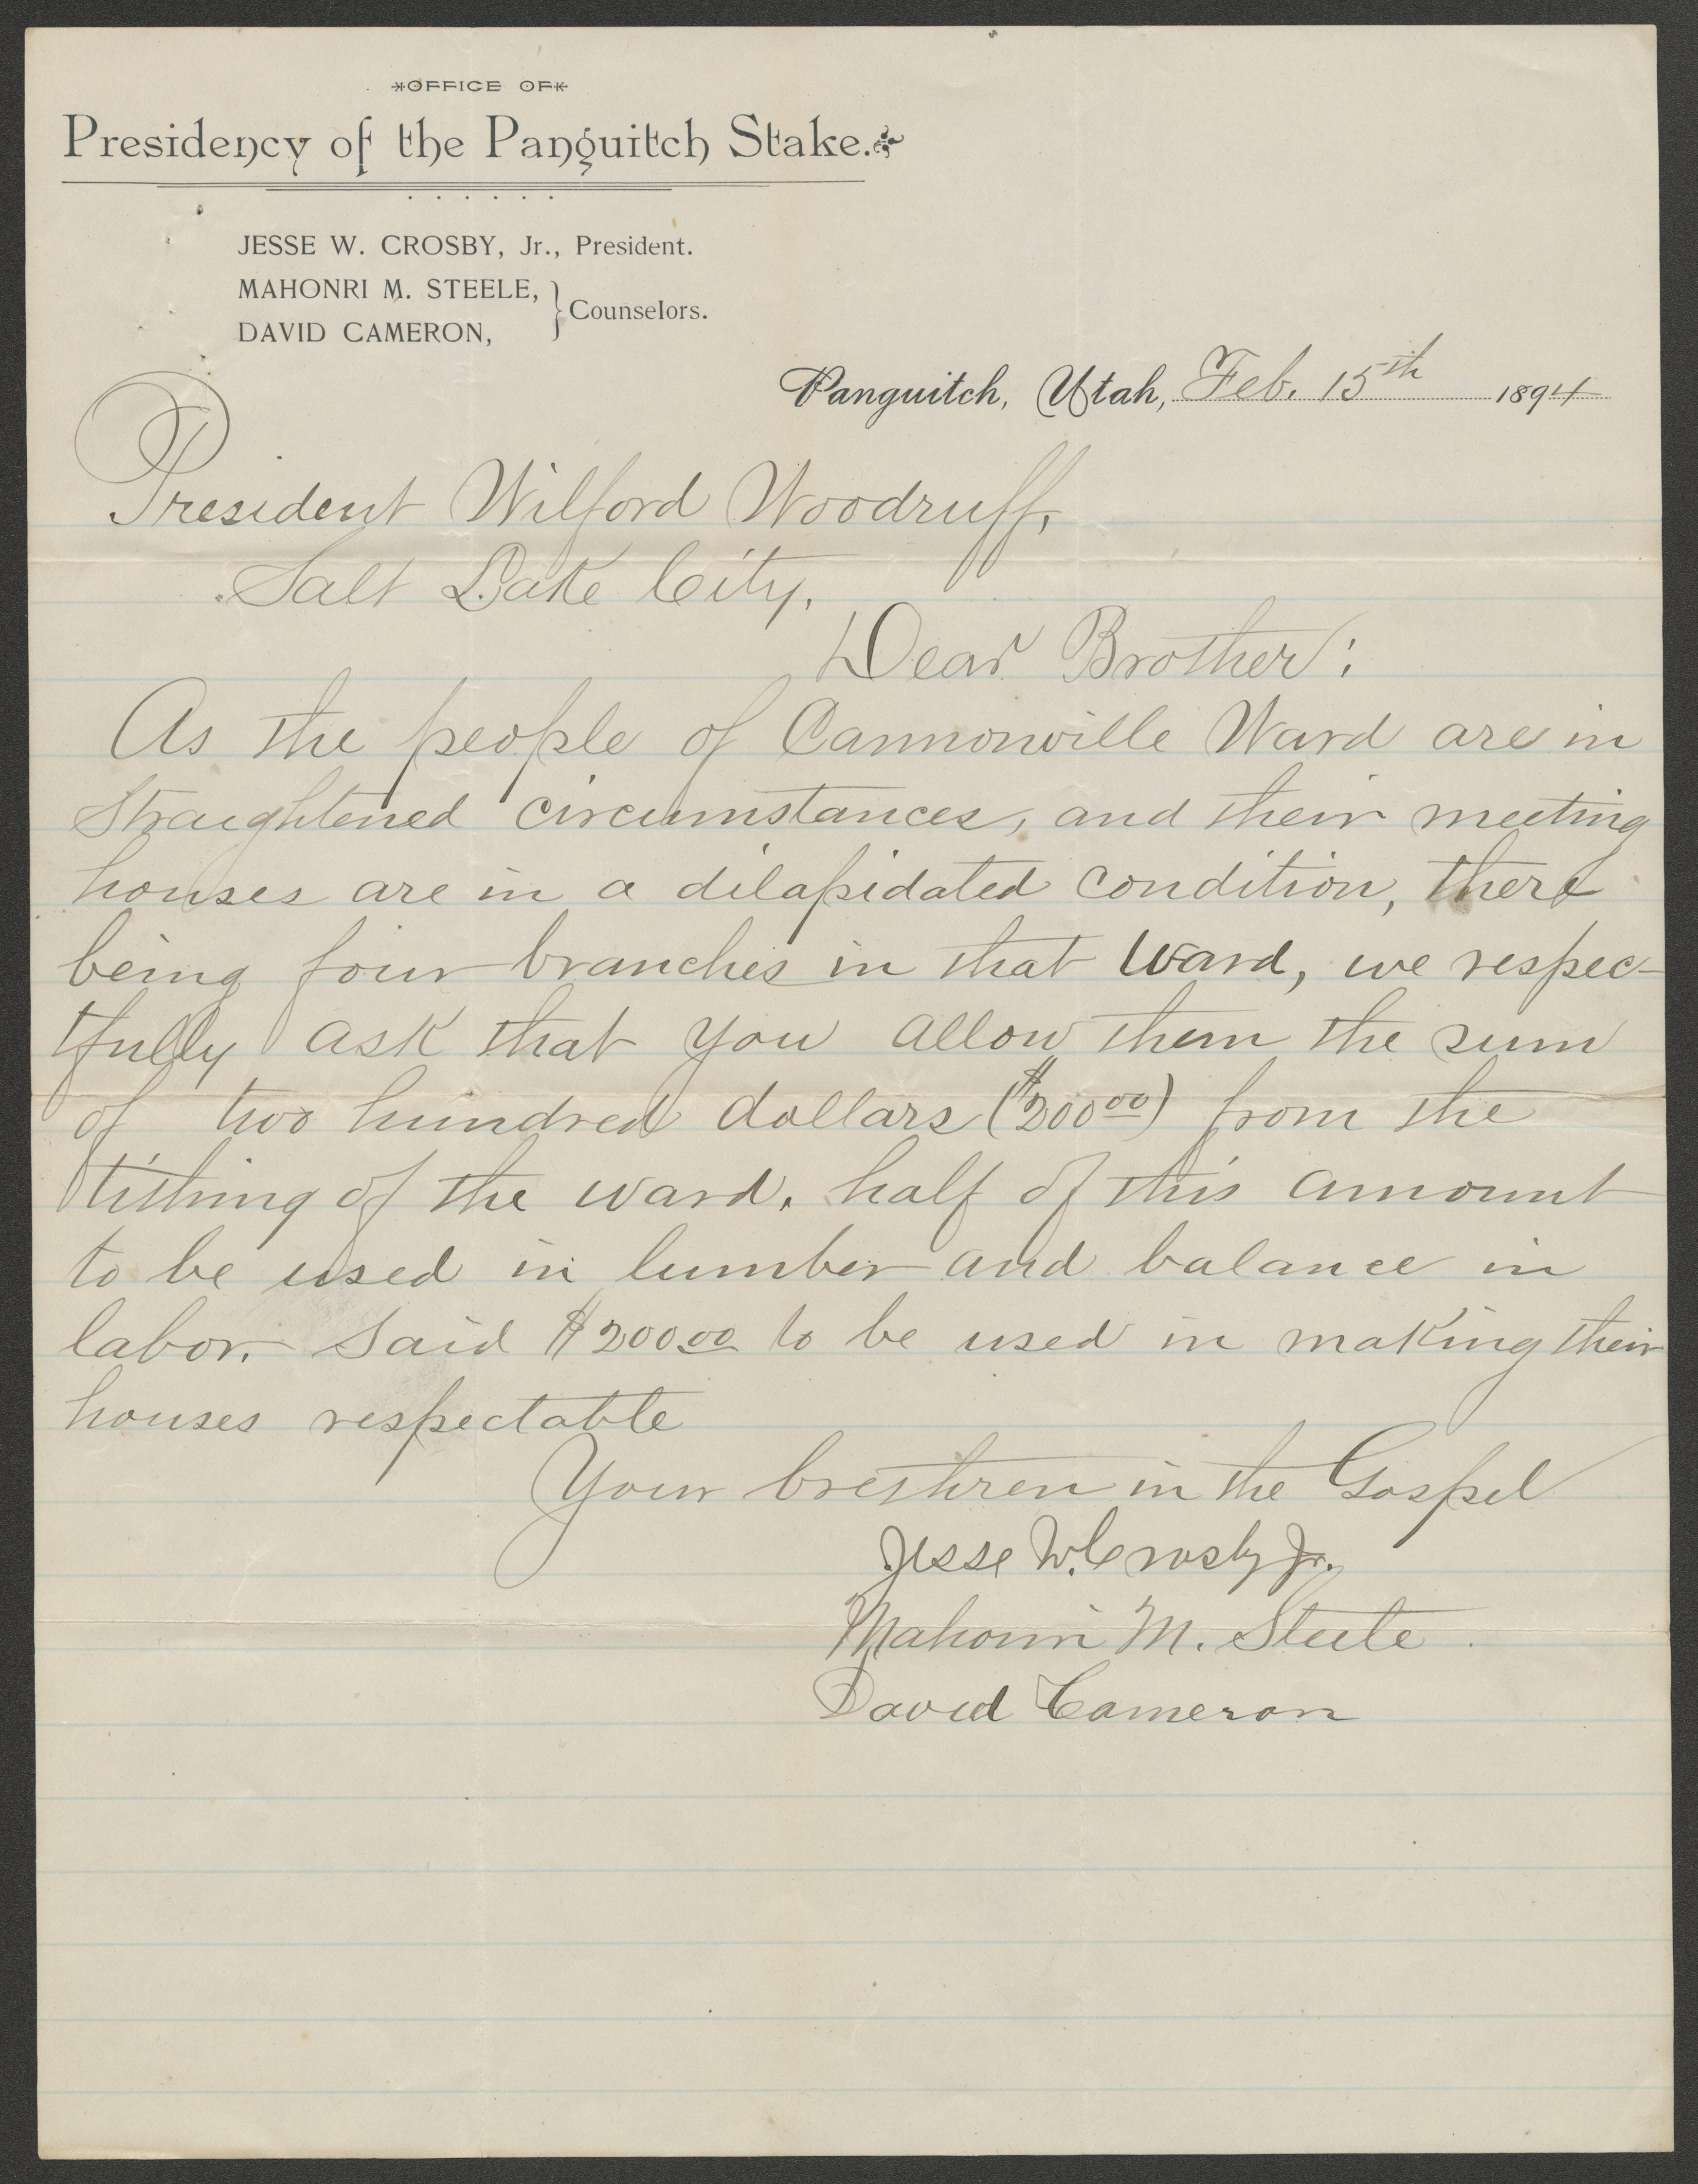 OFFICE OF
Presidency of the Panguitch Stake.
JESSE W. CROSBY, Jr., President.
MAHONRI M. STEELE,
DAVID CAMERON,
Counselors.
Panguitch, Utah, Feb. 15th 1894
President Wilford Woodruff,
Salt Lake City.
Dear Brother:
As the people of Cannonville Ward are in
straightened circumstances, and their meeting
houses are in a dilapidated condition, there
being four branches in that Ward, we respec-
tfully ask that you allow them the sum
of two hundred dollars ($200 00) from the
tithing of the ward. half of this amount
to be used in lumber and balance in
labor. Said $200 00 to be used in making their
houses respectable
Your brethren in the Gospel
Jesse W. Crosby Jr.
Mahonri M. Steele
David Cameron